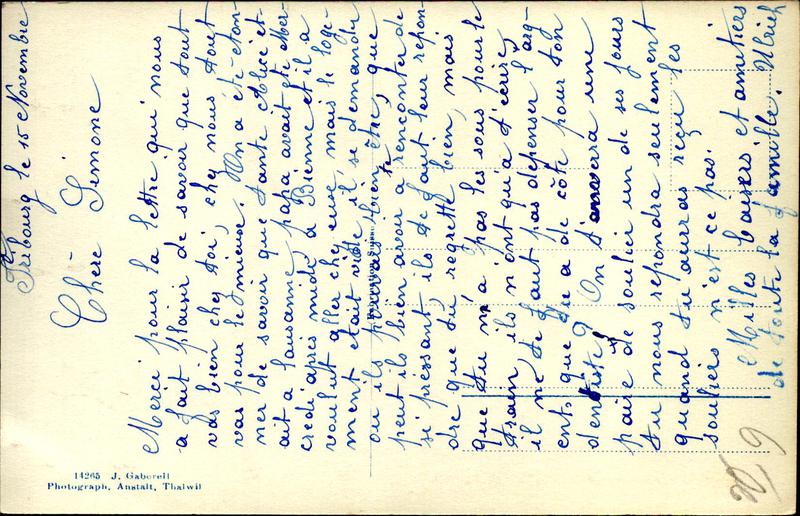 Fribourg le 15 Novembre
Chère Simone
Merci pour la lettre qui nous
a fait plaisir de savoir que tout
vas bien chez toi, chez nous tout
vas pour le mieux. On a été éton-
ner de savoir que tante Alice ét-
ait a Lausanne, papa avait été Mer-
credi après midi à Bienne et il a
voulut aller chez eux, mais le loge-
ment était vide il se demande
ou ils peut bien être, que
peut ils bien avoir a rencontrer de
si préssant ils te faut leur répon-
dre que tu regrette bien, mais
que tu n'a pas les sous pour le
train, ils n'ont qu'a t'écrire,
il ne te faut pas dépenser l'arg-
ent que tu a de côte pour ton
dentiste? On t'anverra une
paire de soulier un de ses jours
tu nous repondra seulement
quand tu auras reçu les
souliers n'est ce pas.
Milles baisers et amitiers
de toute la famille. Ulrich
14265 J. Gaberell
Photograph, Anstalt, Thalwil